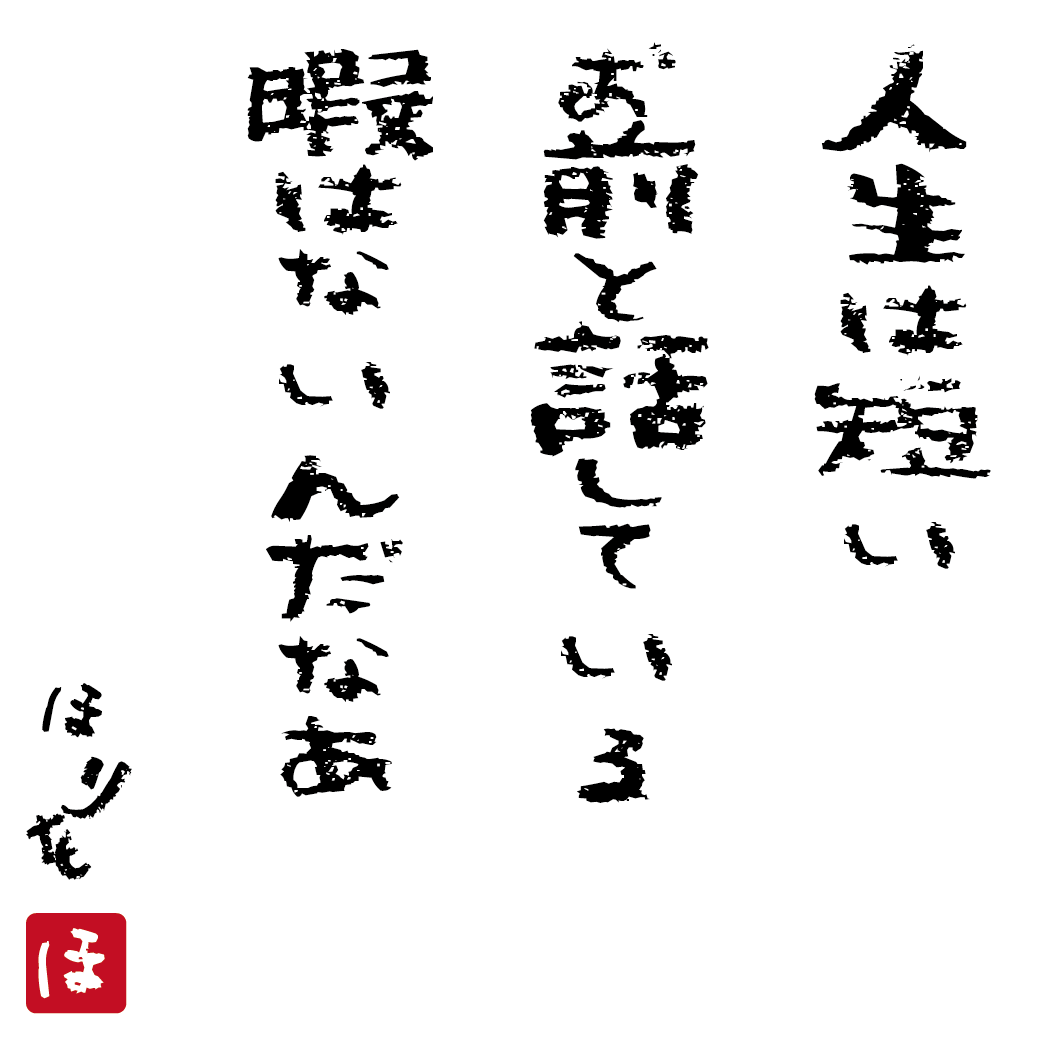 人生は短い
お前と話している
暇はないんだなあ
ほりを
ほ